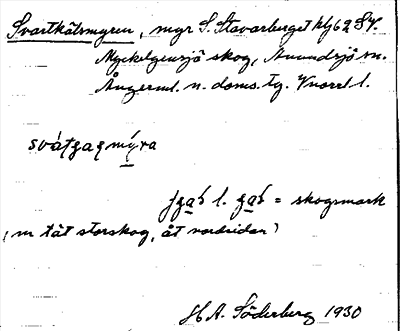 Svartkätsmyren, myr S. Stavarberget hfj 62 SV.
Myckelgensjö skog, Anundsjö sn.
Ångerml. n. doms. tg. Vnorrl l.
svát̩ʒaɛmýra
ʒaš l. ʒaš = skogsmark
(m tät storskog, åt nordsidan)
H A. Söderberg 1930